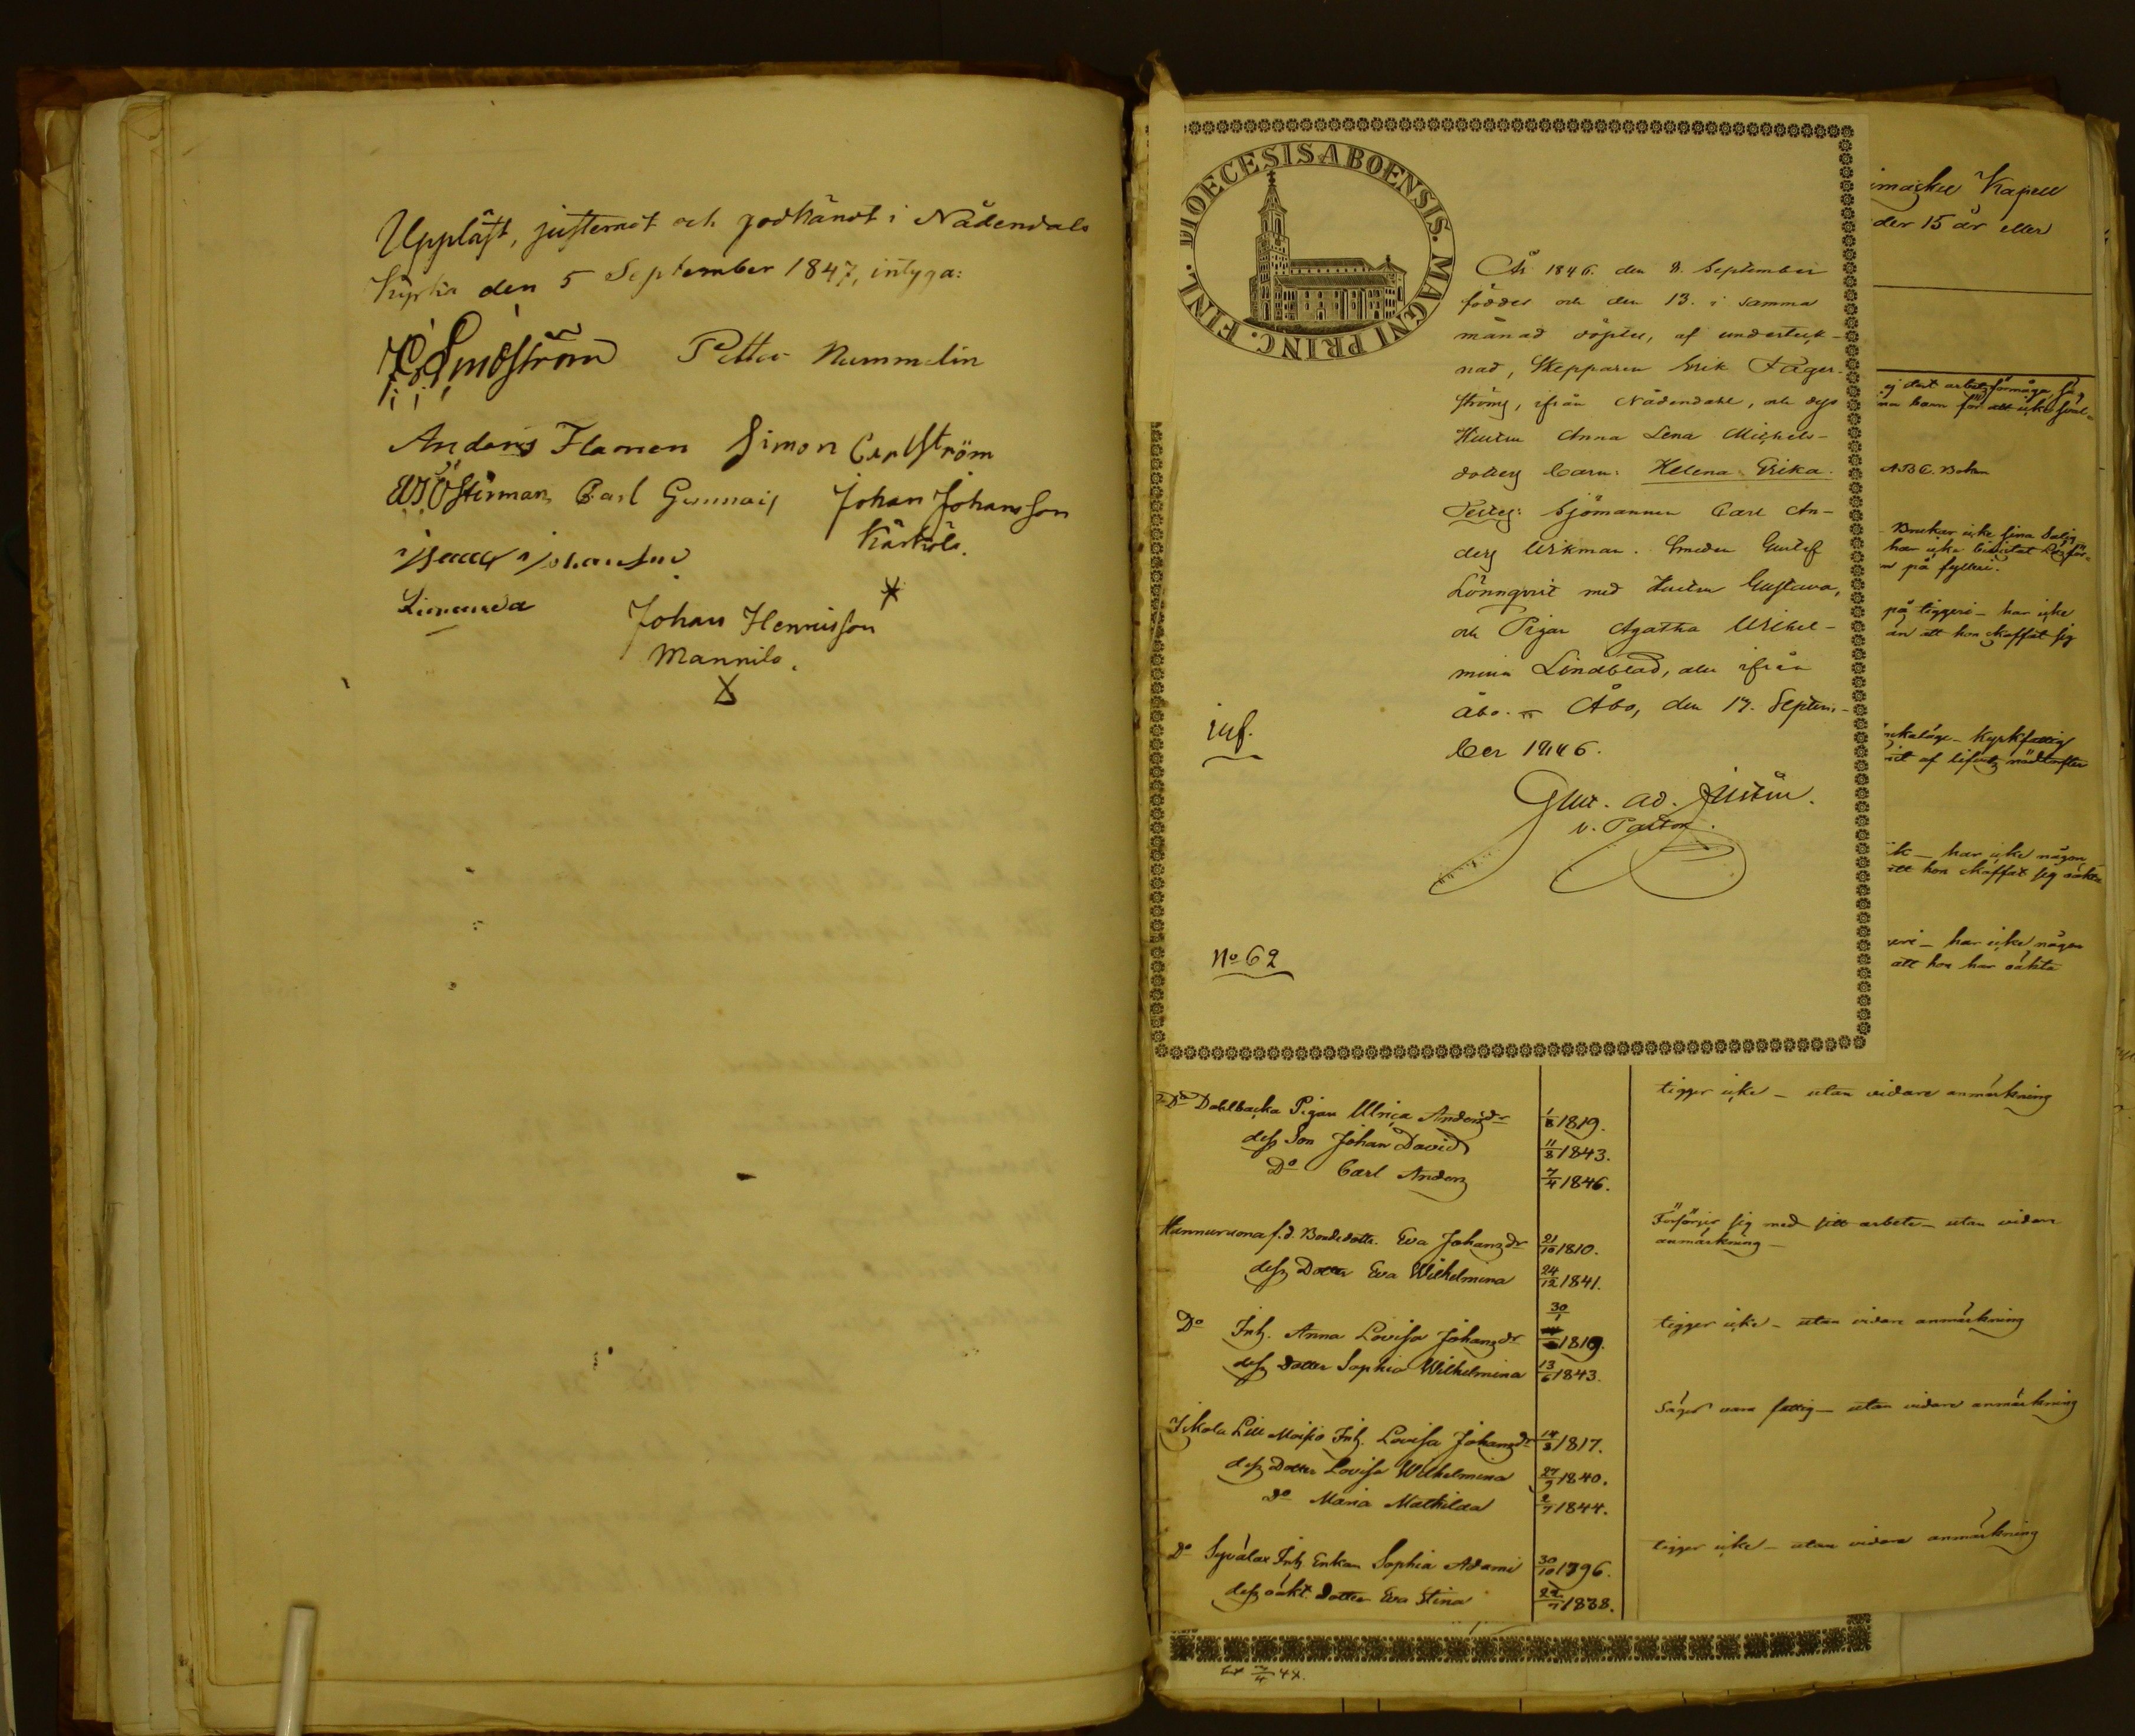 Uppläst, justerat och godkändt i Nådendals
Kyrka den 5 September 1847, intyga:
Petter Nummelin
Anders Flamen Simon Carlström
Österman Carl Johan Johansson
Johan Hennisson
Mannila.
X
DIOECESIS ABOENSIS. MAGNI PRINC. FINL.
År 1846 den 8. September
föddes och den 13. i samma
månad döptes, af underteck-
nad, Skepparen Erik Fager-
ströms, ifrån Nådendahl, och dess
Hustru Anna Lena Michels-
dotters barn: Helena Erika.
Testes: Sjömannen Carl An-
ders Wikman. Smeden Gustaf
Lönnqvist med Hustru Gustava,
och Pigan Agatha Wilhel-
mina Lindblad, alla ifrån
Åbo. — Åbo, den 17. Septem-
ber 1846.
Gust. Ad.
v. Pastor.
inf.
No 62
Kapell
der 15 år eller
ej dest arbetsförmåga
A.B.C. Boken
Brukar icke sina
på fylleri.
på tiggeri — har icke
än att hon skaffat sig
kyrkfattig
har icke någon
att hon skaffat sig oäkta
har icke någon
att hon har oäkta
Do Dahlbacka Pigan Ulrica Andersdr 1/8 1819. tigger icke — utan vidare anmärkning
dess Son Johan David 11/8 1843.
Do Carl Anders 7/4 1846.
f.d. Bondedotter Eva Johansdr 21/10 1810. Försörjer sig med sitt arbete — utan vidare
anmärkning —
dess Dotter Eva Wilhelmina 24/12 1841.
Do Inh. Anna Lovisa Johansdr 30/1 1819. tigger icke — utan vidare anmärkning
dess Dotter Sophia Wilhelmina 13/6 1843.
Iskala Lill Moisio Inh. Lovisa Johansdr 14/8 1817. Säges vara fattig — utan vidare anmärkning
dess Dotter Lovisa Wilhelmina 27/9 1840.
do Maria Mathilda 2/7 1844.
Do Inh. Enkan Sophia Adami 30/10 1796. tigger icke — utan vidare anmärkning
dess oäkt. Dotter Eva Stina 1838.